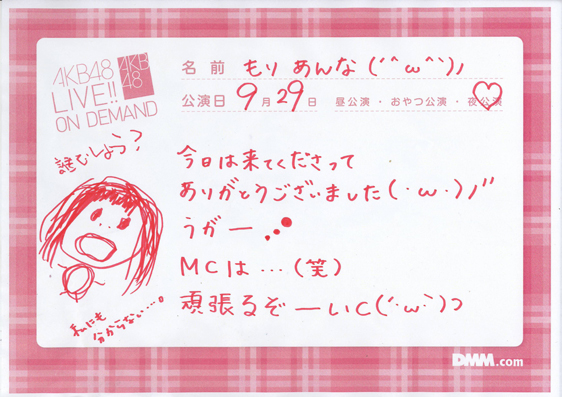 AKB48
LIVE!!
ON DEMAND
AKB
48
名前 もり あんな (´^ω^`)ノ
公演日 9月29日 昼公演・おやつ公演・夜公演
誰でしょう?
今日は来てくださって
ありがとうございました(・ω・)ノ"
うがー
MCは…(笑)
頑張るぞーいC(´・ω・`)つ
私にも
分からない…。
DMM.com